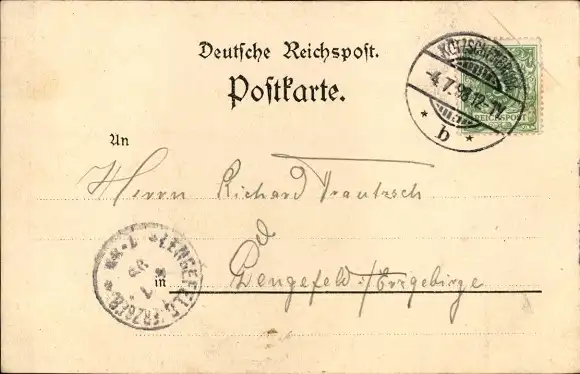 Deutsche Reichspost.
Postkarte.
KÖTZSCHENBRODA
4.7.98.12-1V.
* b *
REICHSPOST
An
Herrn Richard Trautzsch
in
Lengefeld i/Erzgebirge
LENGEFELD (ERZGEB)